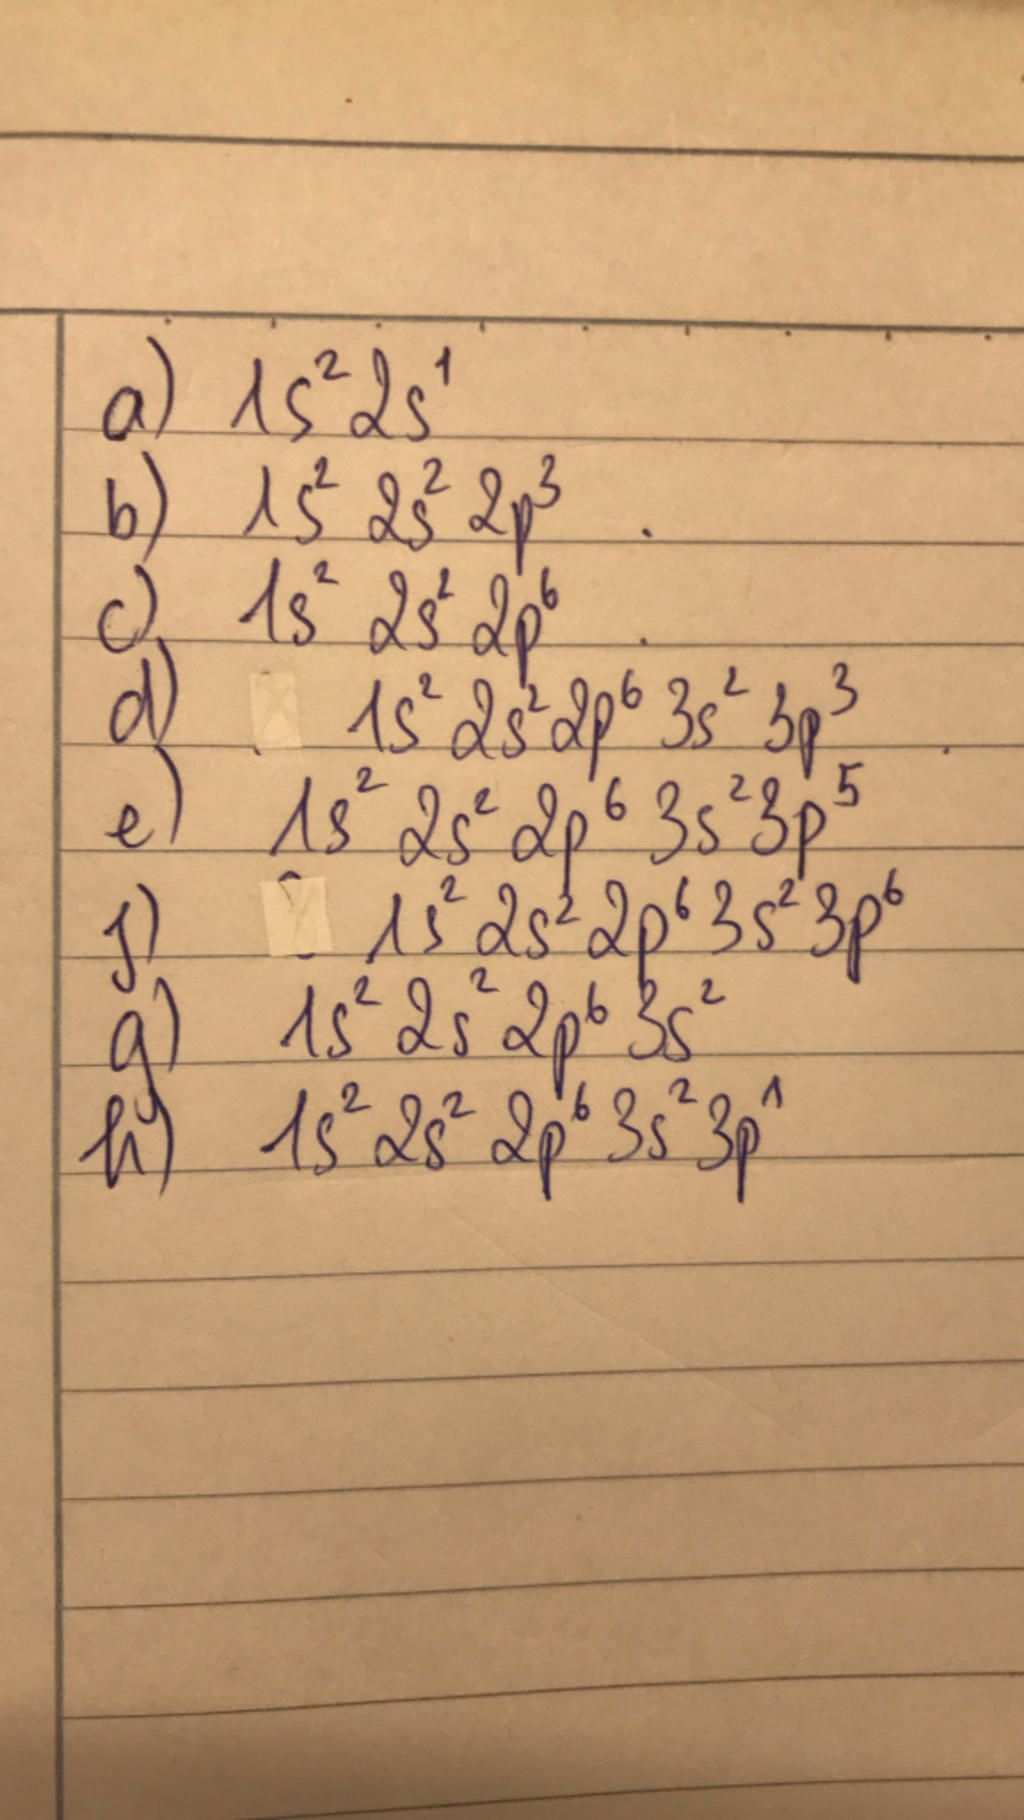 a) 1s² 2s¹
b) 1s² 2s² 2p³
c) 1s² 2s² 2p⁶
d) 1s² 2s² 2p⁶ 3s² 3p³
e) 1s² 2s² 2p⁶ 3s² 3p⁵
f) 1s² 2s² 2p⁶ 3s² 3p⁶
g) 1s² 2s² 2p⁶ 3s²
h) 1s² 2s² 2p⁶ 3s² 3p¹